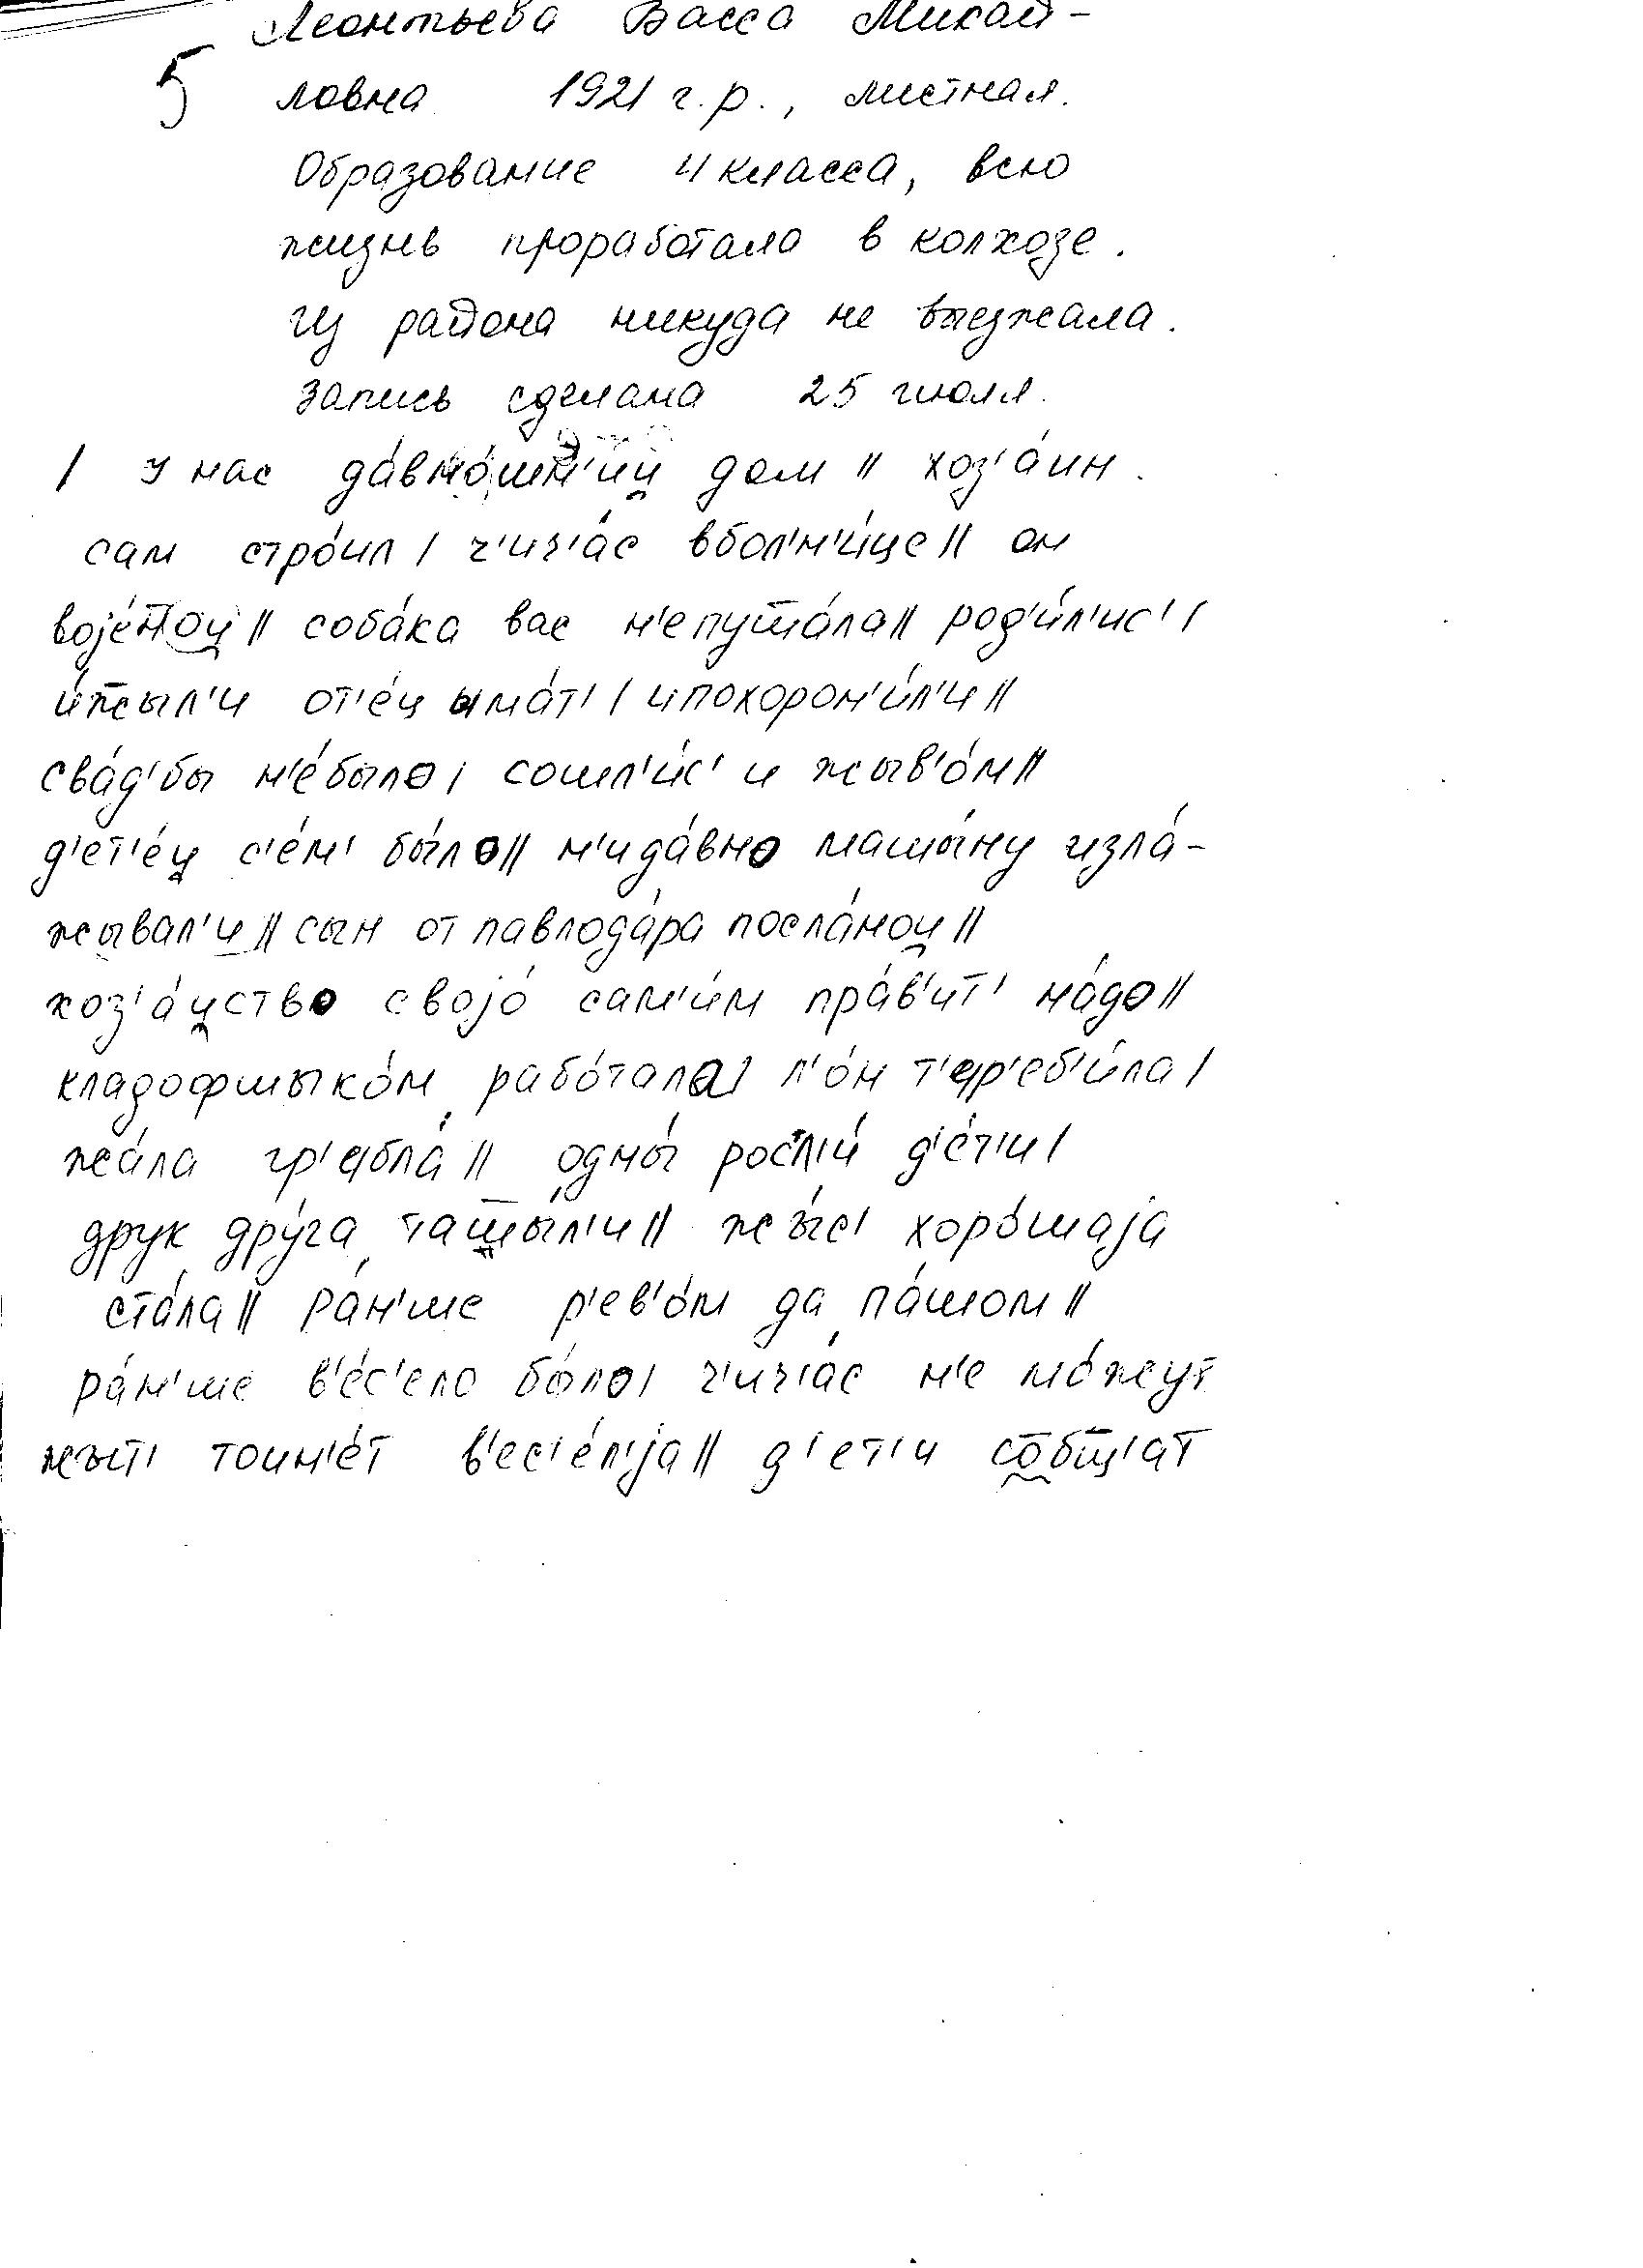 Леонтьева Васса Михай-
5 ловна 1921 г.р., местная.
Образование 4 класса, всю
жизнь проработала в колхозе.
Из района никуда не выезжала.
Запись сделана 25 июля.
/ У нас да́вно́шн'ии̯ дом // хоз'а́ин.
сам стро́ил / ч'ич'а́с вбол'н'и́це // он
воjе́нои̯ // соба́ка вас н'епуга́ла // род'и́л'ис' /
и́жыл'и от'е́ц ыма́т' / ипохорон'и́л'и //
сва́д'бы н'е́было / сошл'и́с' и жыв'о́м //
д'ет'е́и̯ с'е́м' бы́ло // н'ида́вно машы́ну изла́-
жывал'и // сын от павлода́ра посла́нои̯ //
хоз'а́и̯ство своjо́ сам'и́м пра́в'ит' на́до //
кладофшыко́м рабо́тала / л'о́н т'ер'еб'и́ла /
жа́ла гр'ебла́ // одны́ росл'и́ д'е́т'и /
друк дру́га ташы́л'и // жы́с' хоро́шаjа
ста́ла // ра́н'ше р'ев'о́м да па́шом //
ра́н'ше в'е́с'ело бы́ло / ч'ич'а́с н'е мо́жут
жыт' тоин'е́т в'ес'е́л'jа // д'ет'и сообщ'ат